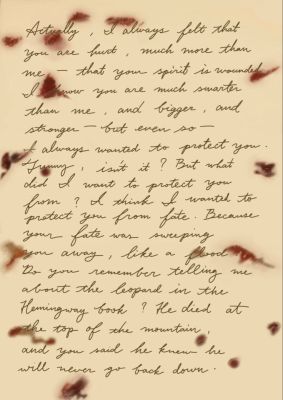 Actually, I always felt that
you are hurt, much more than
me — that your spirit is wounded.
I know you are much smarter
than me, and bigger, and
stronger — but even so —
I always wanted to protect you.
Funny, isn't it? But what
did I want to protect you
from? I think I wanted to
protect you from fate. Because
your fate was sweeping
you away, like a flood
Do you remember telling me
about the leopard in the
Hemingway book? He died at
the top of the mountain,
and you said he knew he
will never go back down.